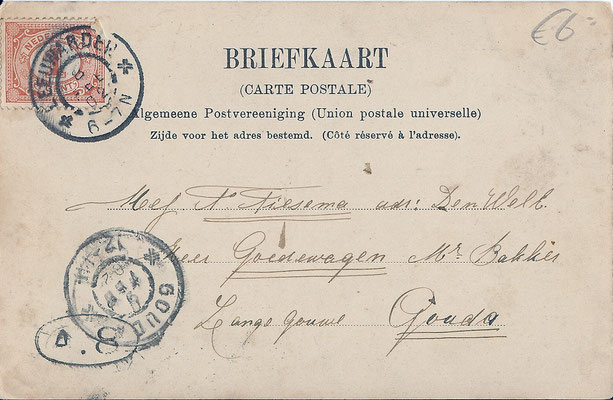 €6-
NEDERL
CENT
LEEUWARDEN
6-7N
BRIEFKAART
(CARTE POSTALE)
Algemeene Postvereeniging (Union postale universelle)
Zijde voor het adres bestemd. (Côté réservé à l'adresse).
Mej T Fiesema adr: Den Welb.
Heer Goedewagen Mr. Bakker
Lange Gouwe Gouda
GOUDA
12-1